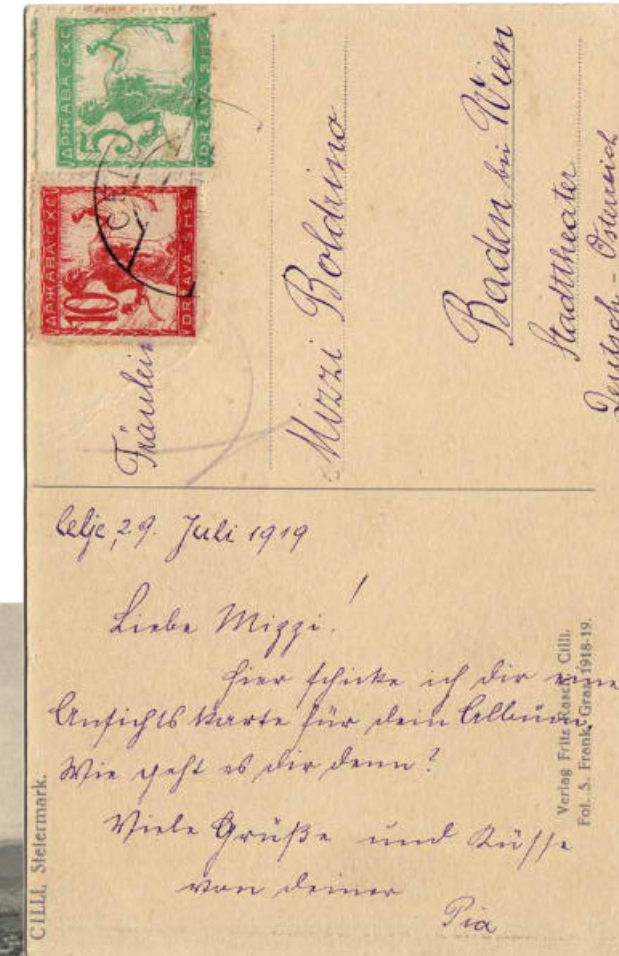 ДРЖАВА СХС
5
DRŽAVA SHS
ДРЖАВА СХС
10
DRŽAVA SHS
CELJE
Fräulein
Mizzi Boldrino
Baden bei Wien
Stadttheater
Deutsch-Österreich
Celje, 29. Juli 1919
Liebe Mizzi!
Hier schicke ich dir eine
Ansichtskarte für dein Album.
Wie geht es dir denn?
Viele Grüße und Küsse
von deiner
Pia
CILLI, Steiermark.
Verlag Fritz Rasch, Cilli.
Fot. S. Frank, Graz 1918-19.